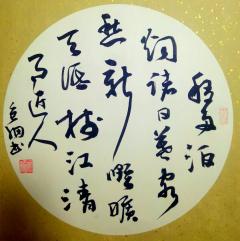 移舟泊
烟渚日暮客
愁新野曠
天低樹江清
月近人
书